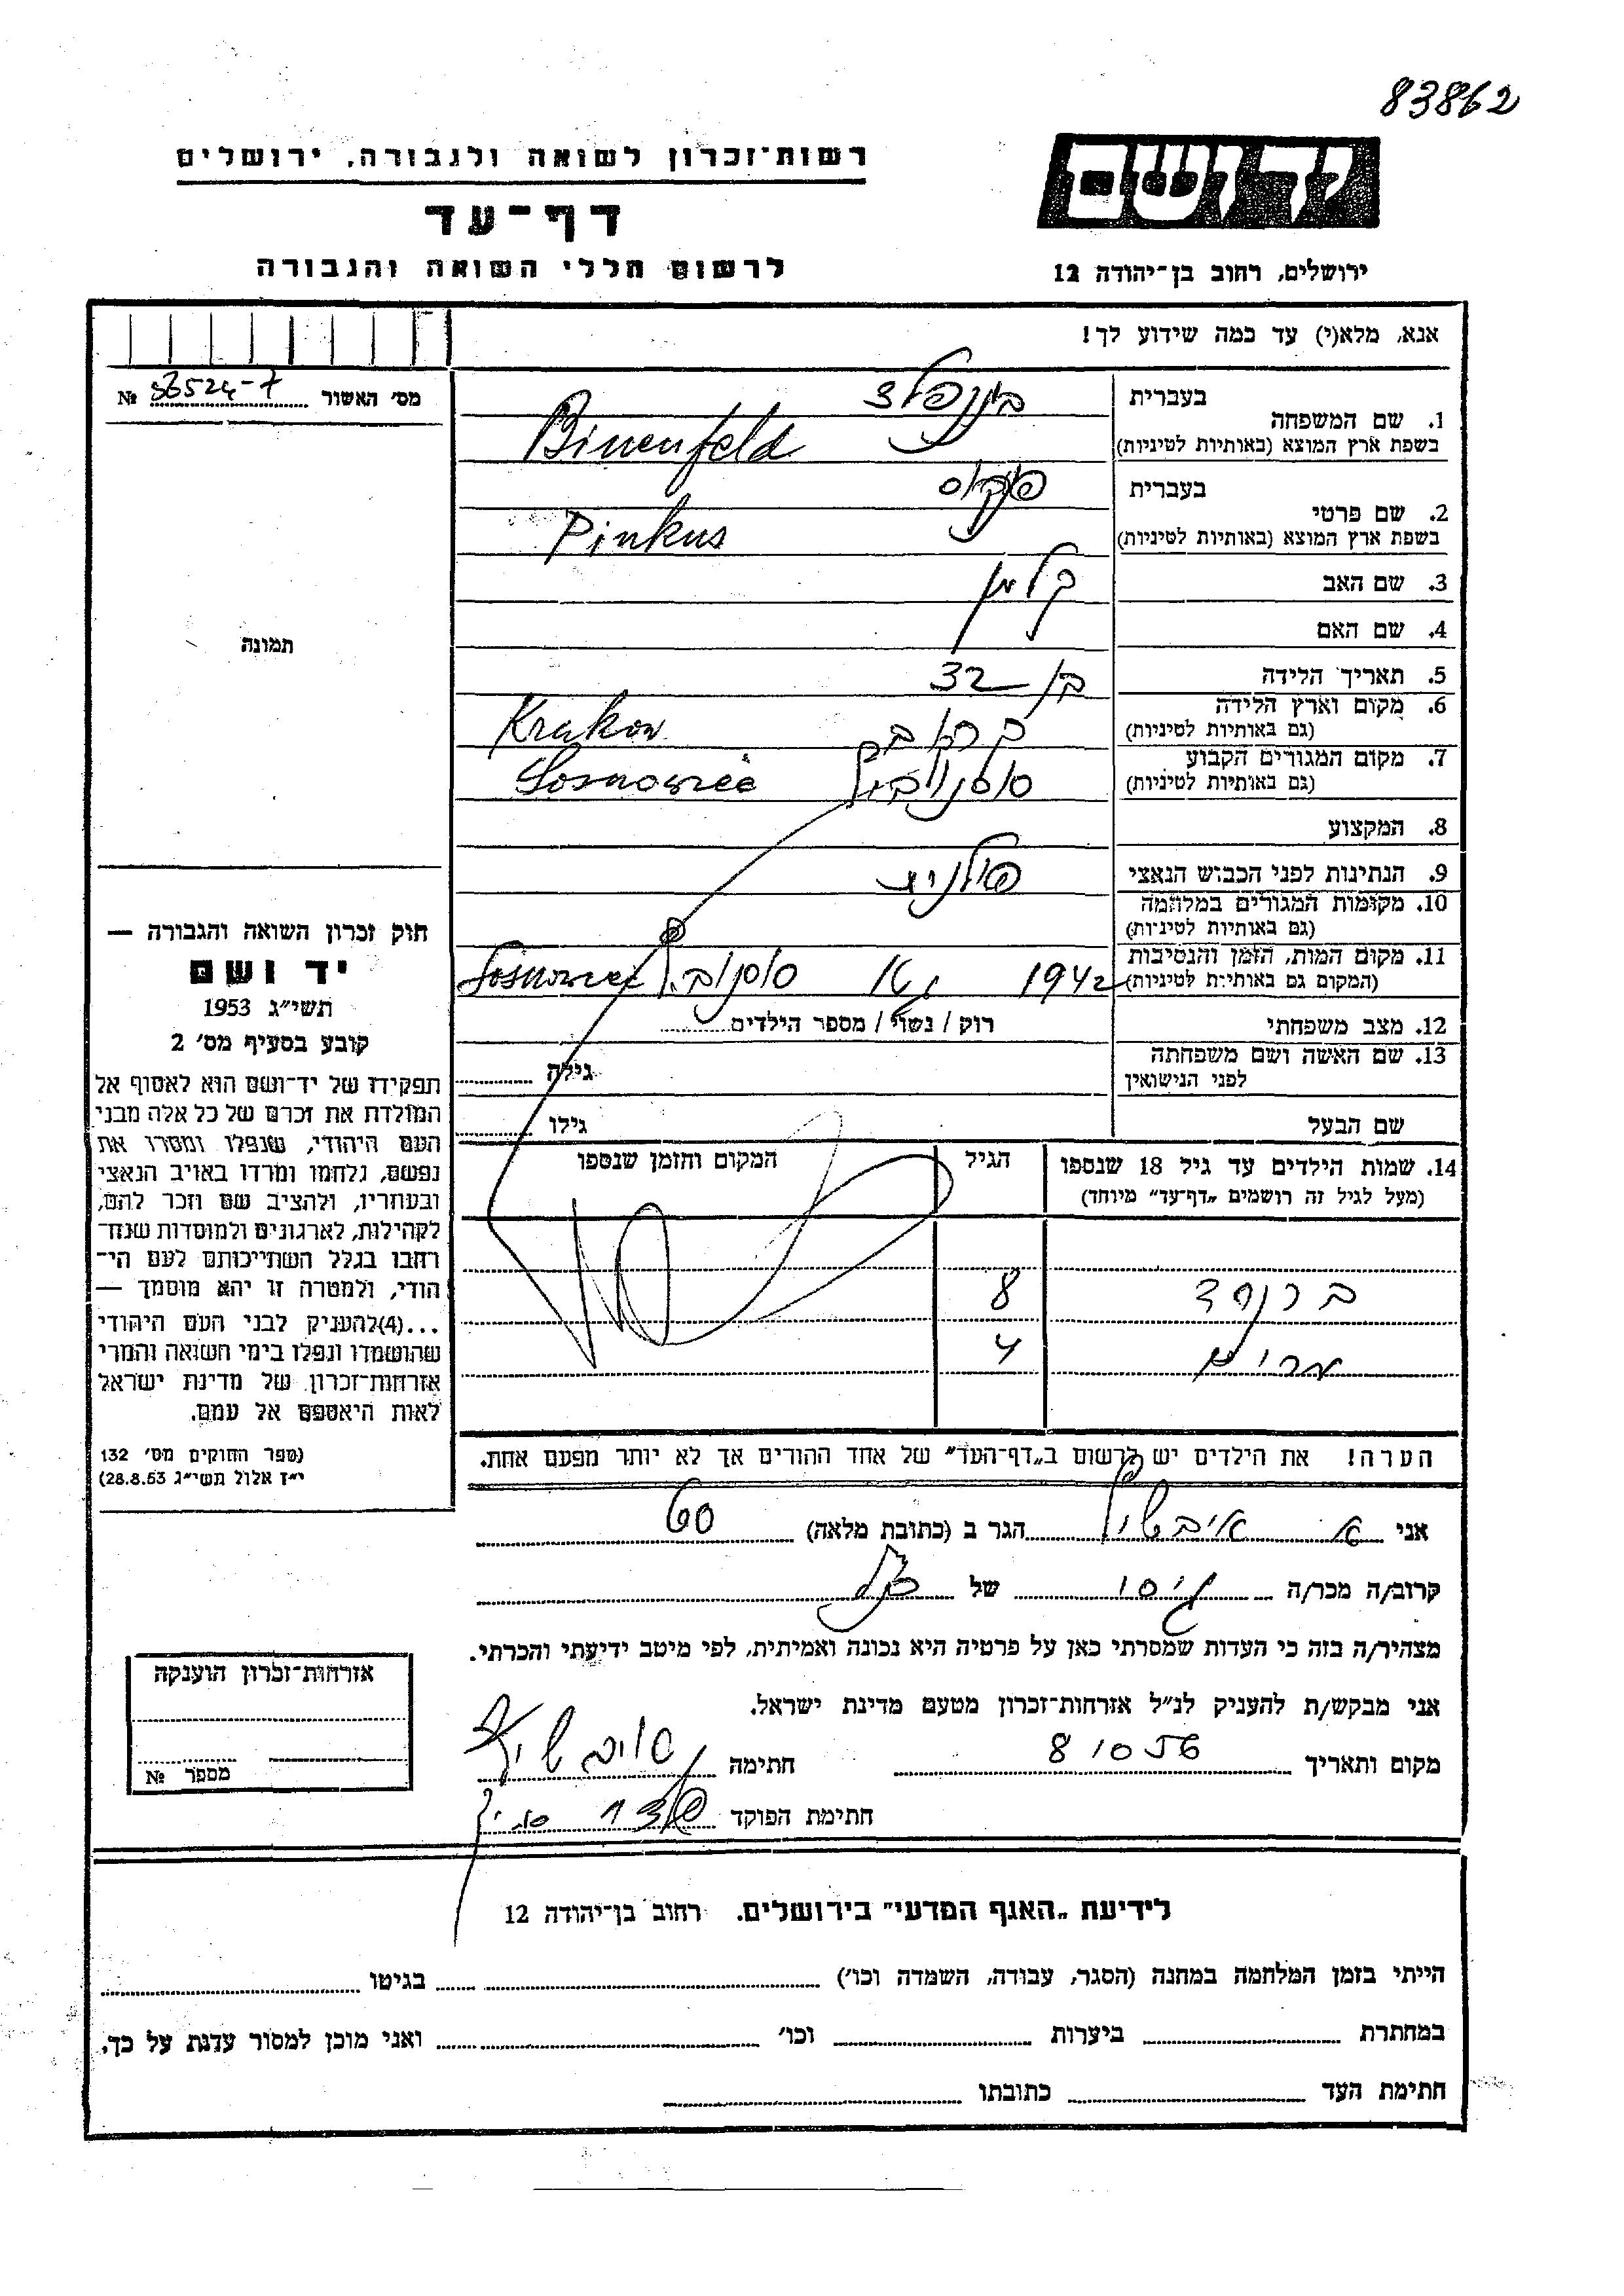 83862
יד ושם
רשות־זכרון לשואה ולגבורה, ירושלים
דף־עד
לרשום חללי השואה והגבורה
ירושלים, רחוב בן־יהודה 12
אנא, מלא(י) עד כמה שידוע לך!
מס׳ האשור №
1. שם המשפחה
בעברית
בשפת ארץ המוצא (באותיות לטיניות)
בינפלד
Binenfeld
2. שם פרטי
בעברית
בשפת ארץ המוצא (באותיות לטיניות)
פינקוס
Pinkus
3. שם האב
קלמן
4. שם האם
5. תאריך הלידה
בן 32
6. מקום וארץ הלידה
(גם באותיות לטיניות)
Krakow
7. מקום המגורים הקבוע
(גם באותיות לטיניות)
8. המקצוע
9. הנתינות לפני הכבוש הנאצי
פולנית
10. מקומות המגורים במלחמה
(גם באותיות לטיניות)
11. מקום המות, הזמן והנסיבות
(המקום גם באותיות לטיניות)
1942
12. מצב משפחתי
רוק / נשוי / מספר הילדים
13. שם האשה ושם משפחתה
לפני הנישואין
גילה
שם הבעל
גילו
14. שמות הילדים עד גיל 18 שנספו
(מעל לגיל זה רושמים „דף־עד” מיוחד)
הגיל
המקום והזמן שנספו
ברנרד 8
מרים 4
הערה! את הילדים יש לרשום ב„דף־העד” של אחד ההורים אך לא יותר מפעם אחת.
תמונה
חוק זכרון השואה והגבורה —
יד ושם
תשי״ג 1953
קובע בסעיף מס׳ 2
תפקידו של יד־ושם הוא לאסוף אל
המולדת את זכרם של כל אלה מבני
העם היהודי, שנפלו ומסרו את
נפשם, נלחמו ומרדו באויב הנאצי
ובעוזריו, ולהציב שם וזכר להם,
לקהילות, לארגונים ולמוסדות שנח־
רחבו בגלל השתייכותם לעם הי־
הודי, ולמטרה זו יהא מוסמך —
...(4)להעניק לבני העם היהודי
שהושמדו ונפלו בימי השואה והמרי
אזרחות־זכרון של מדינת ישראל
לאות היאספם אל עמם.
(ספר החוקים מס׳ 132
י״ז אלול תשי״ג 28.8.53)
אני הגר ב (כתובת מלאה)
קרוב/ה מכר/ה גיסו של
מצהיר/ה בזה כי העדות שמסרתי כאן על פרטיה היא נכונה ואמיתית, לפי מיטב ידיעתי והכרתי.
אני מבקש/ת להעניק לנ״ל אזרחות־זכרון מטעם מדינת ישראל.
מקום ותאריך 8 10 56 חתימה
חתימת הפוקד
אזרחות־זכרון הוענקה
מספר №
לידיעת „האגף המדעי” בירושלים, רחוב בן־יהודה 12
הייתי בזמן המלחמה במחנה (הסגר, עבודה, השמדה וכו׳) בגיטו
במחתרת ביערות וכו׳ ואני מוכן למסור עדות על כך.
חתימת העד כתובתו